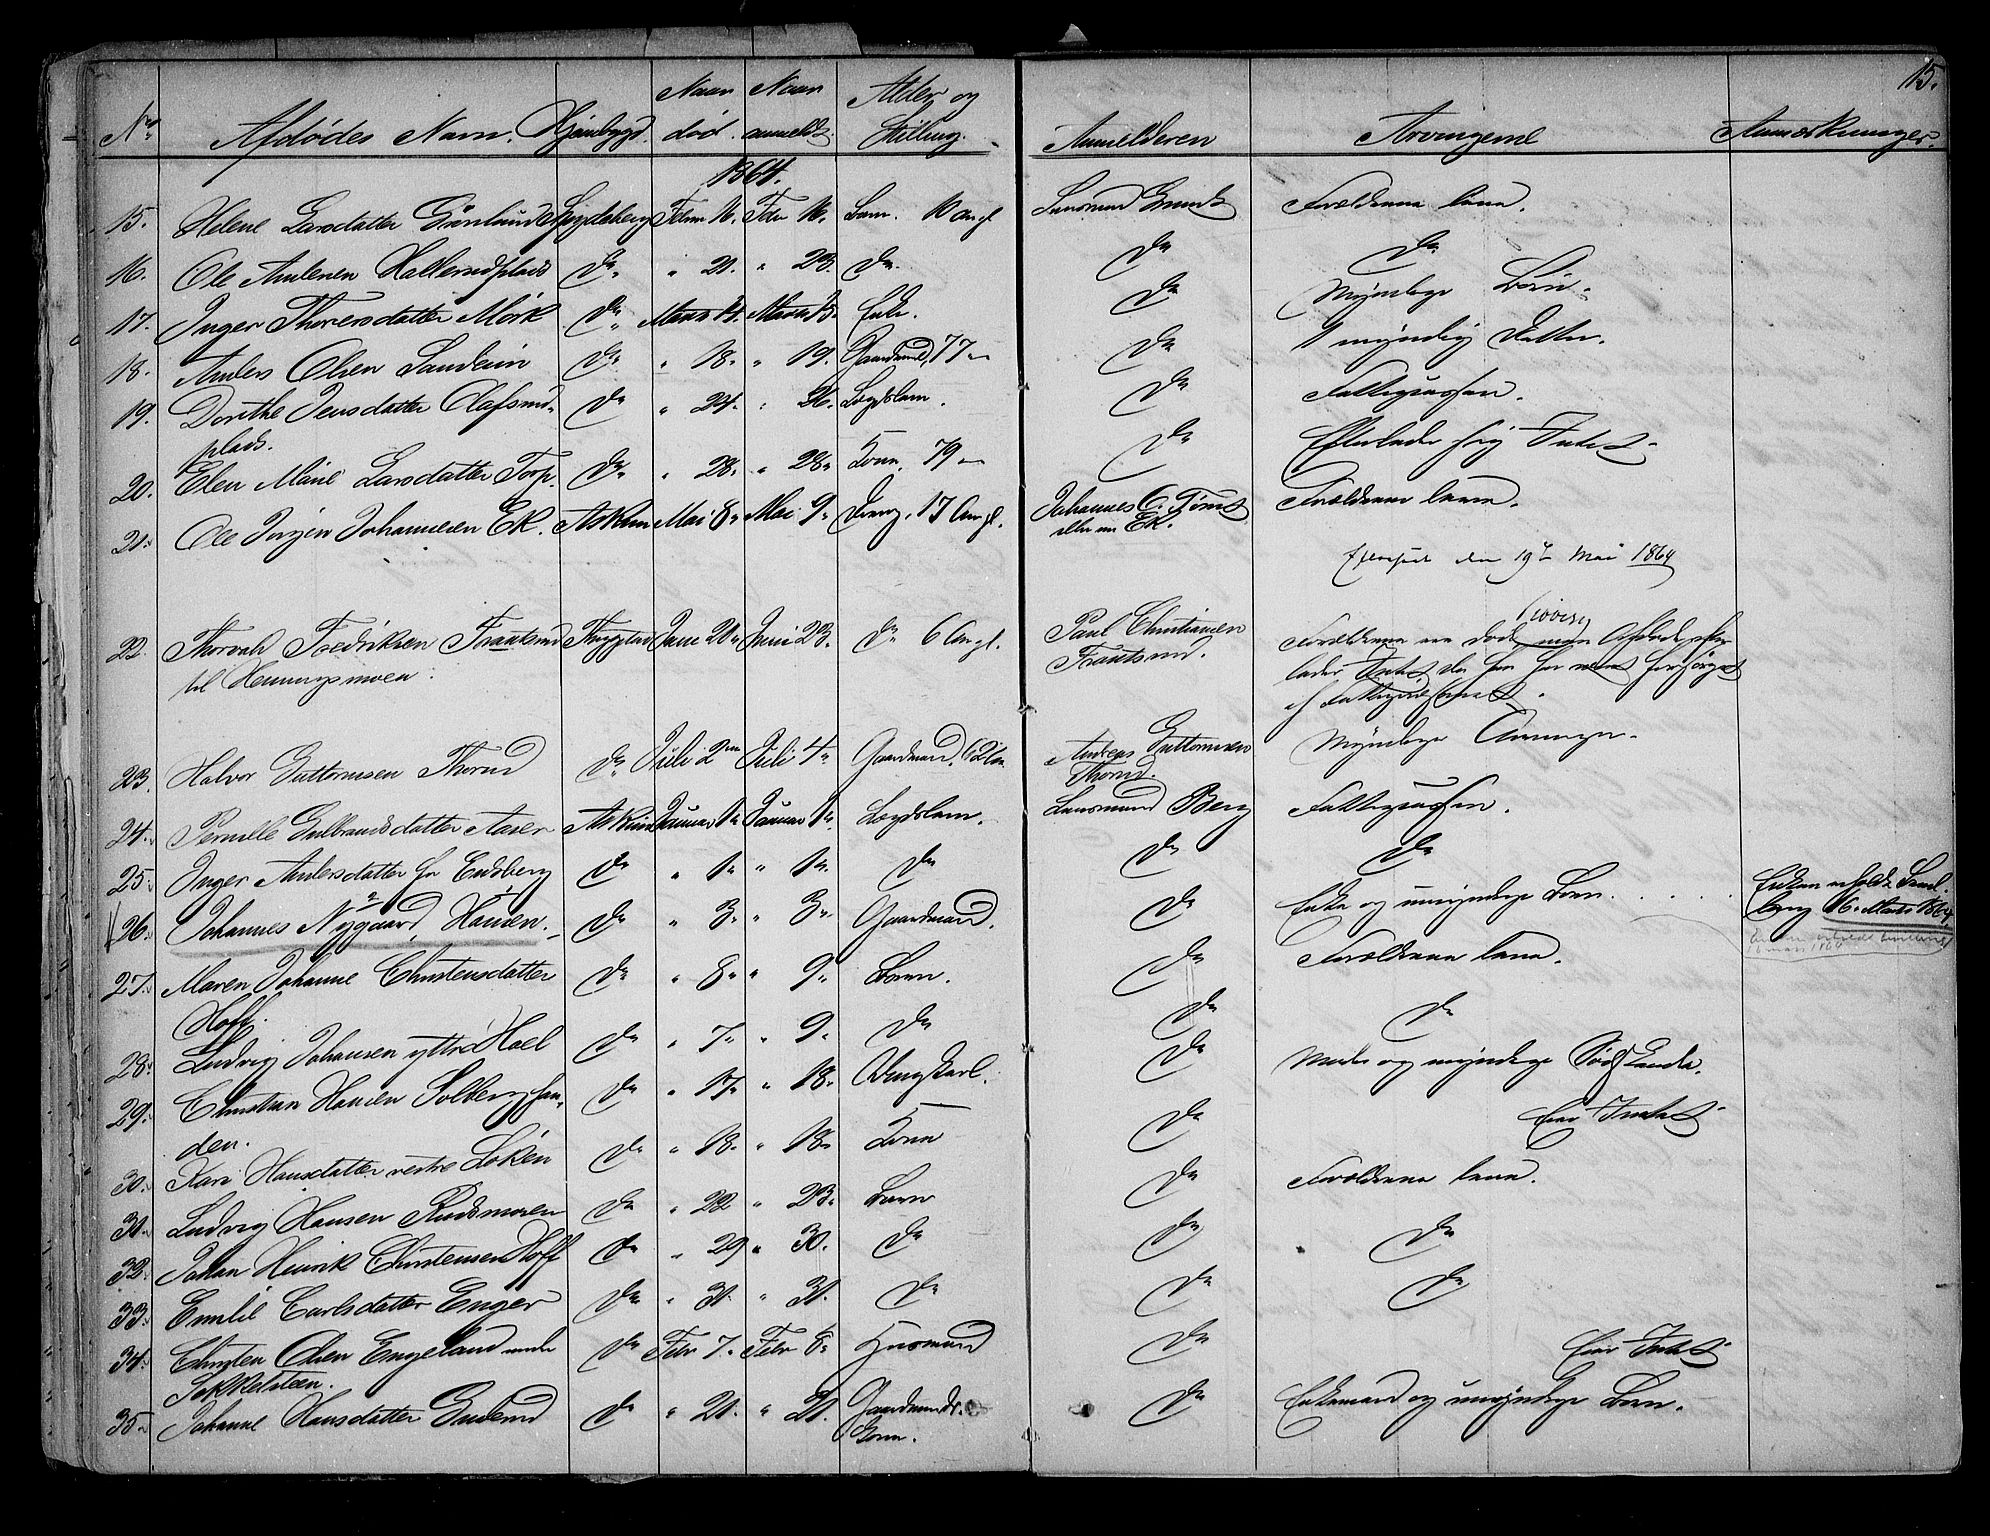 15.
No. Afdødes Navn. Hjembygd. Naar død. Naar anmeldt. Alder og Stilling. Anmelderen Arvingerne Anmærkninger.
1864.
15. Helene Larsdatter Grønlund Spydeberg Febru 16. Febr 16. Barn. 10 Lensmand Forældrene leve.
16. Ole Andersen Hallerudplads do „ 21. „ 23. do. do do
17. Inger Thoresdatter Mørk do „ Marts 14. Marts 15. Enke. do Myndige Børn.
18. Anders Olsen Sandum do „ 18. „ 19. Gaardmand, 77 do 1 myndig Datter.
19. Dorthe Jensdatter Olafsrud- do „ 24. „ 26. Lægdslem. do Fattigcassen.
plads.
20. Elen Marie Larsdatter Torp. do „ 28. „ 28. Kone, 79 do Efterlader sig Intet.
21. Ole Jørgen Johannesen Ek. Askim Mai 8. Mai 9. Dreng, 17 Aar gl. Johannes C. Forældrene leve.
Ek.
den 19de Mai 1864
22. Thorvald Fredriksen Frantsrud Thrygstad Juni 20. Juni 23. do 6 Aar gl. Paul Christiansen Forældrene ere døde men Afdøde efter-
til Henningsmoen. Frantsrud. lader Intet da han har været forsørget
af Fattigvæsenet.
23. Halvor Guttormsen Thorud do Juli 2 Juli 4. Gaardmand, 62 Andreas Guttormsen Myndige Arvinger.
Thorud.
24. Pernille Gulbrandsdatter Aasen Askim Januar 1. Januar 1. Lægdslem. Lensmand Berg Fattigcassen.
25. Inger Andersdatter fra Eidsberg do „ 1. „ 1. do do do
26. Johannes Nygaard, Hansen. do „ 3. „ 3. Gaardmand. do Enke og umyndige Børn. . . . . Enken erholdt Bevil-
ling 16. Marts 1864.
27. Maren Johanne Christensdatter do „ 8. „ 9. Barn. do Forældrene leve.
Hoff.
28. Ludvig Johansen ytre Hael do „ 7. „ 9. do do do
29. Christian Hansen Solbergfan- do „ 17. „ 18. Ungkarl. do Moder og myndige Sødskende.
den.
30. Kari Hansdatter vestre Løken do „ 18. „ 18. Kone do Eier Intet
31. Ludvig Hansen Rudsmoren do „ 22 „ 23. Barn do Forældrene leve.
32. Johan Henrik Christensen Hoff do „ 29 „ 30. do do do
33. Emilie Carlsdatter Enger do „ 31. „ 31. do do do
34. Christen Olsen Engeland under do Febr 7. Febr 8. Husmand do Eier Intet
35. Johanne Hansdatter do „ 21. „ 21. Gaardmands- do Enkemand og umyndige Børn.
Kone.